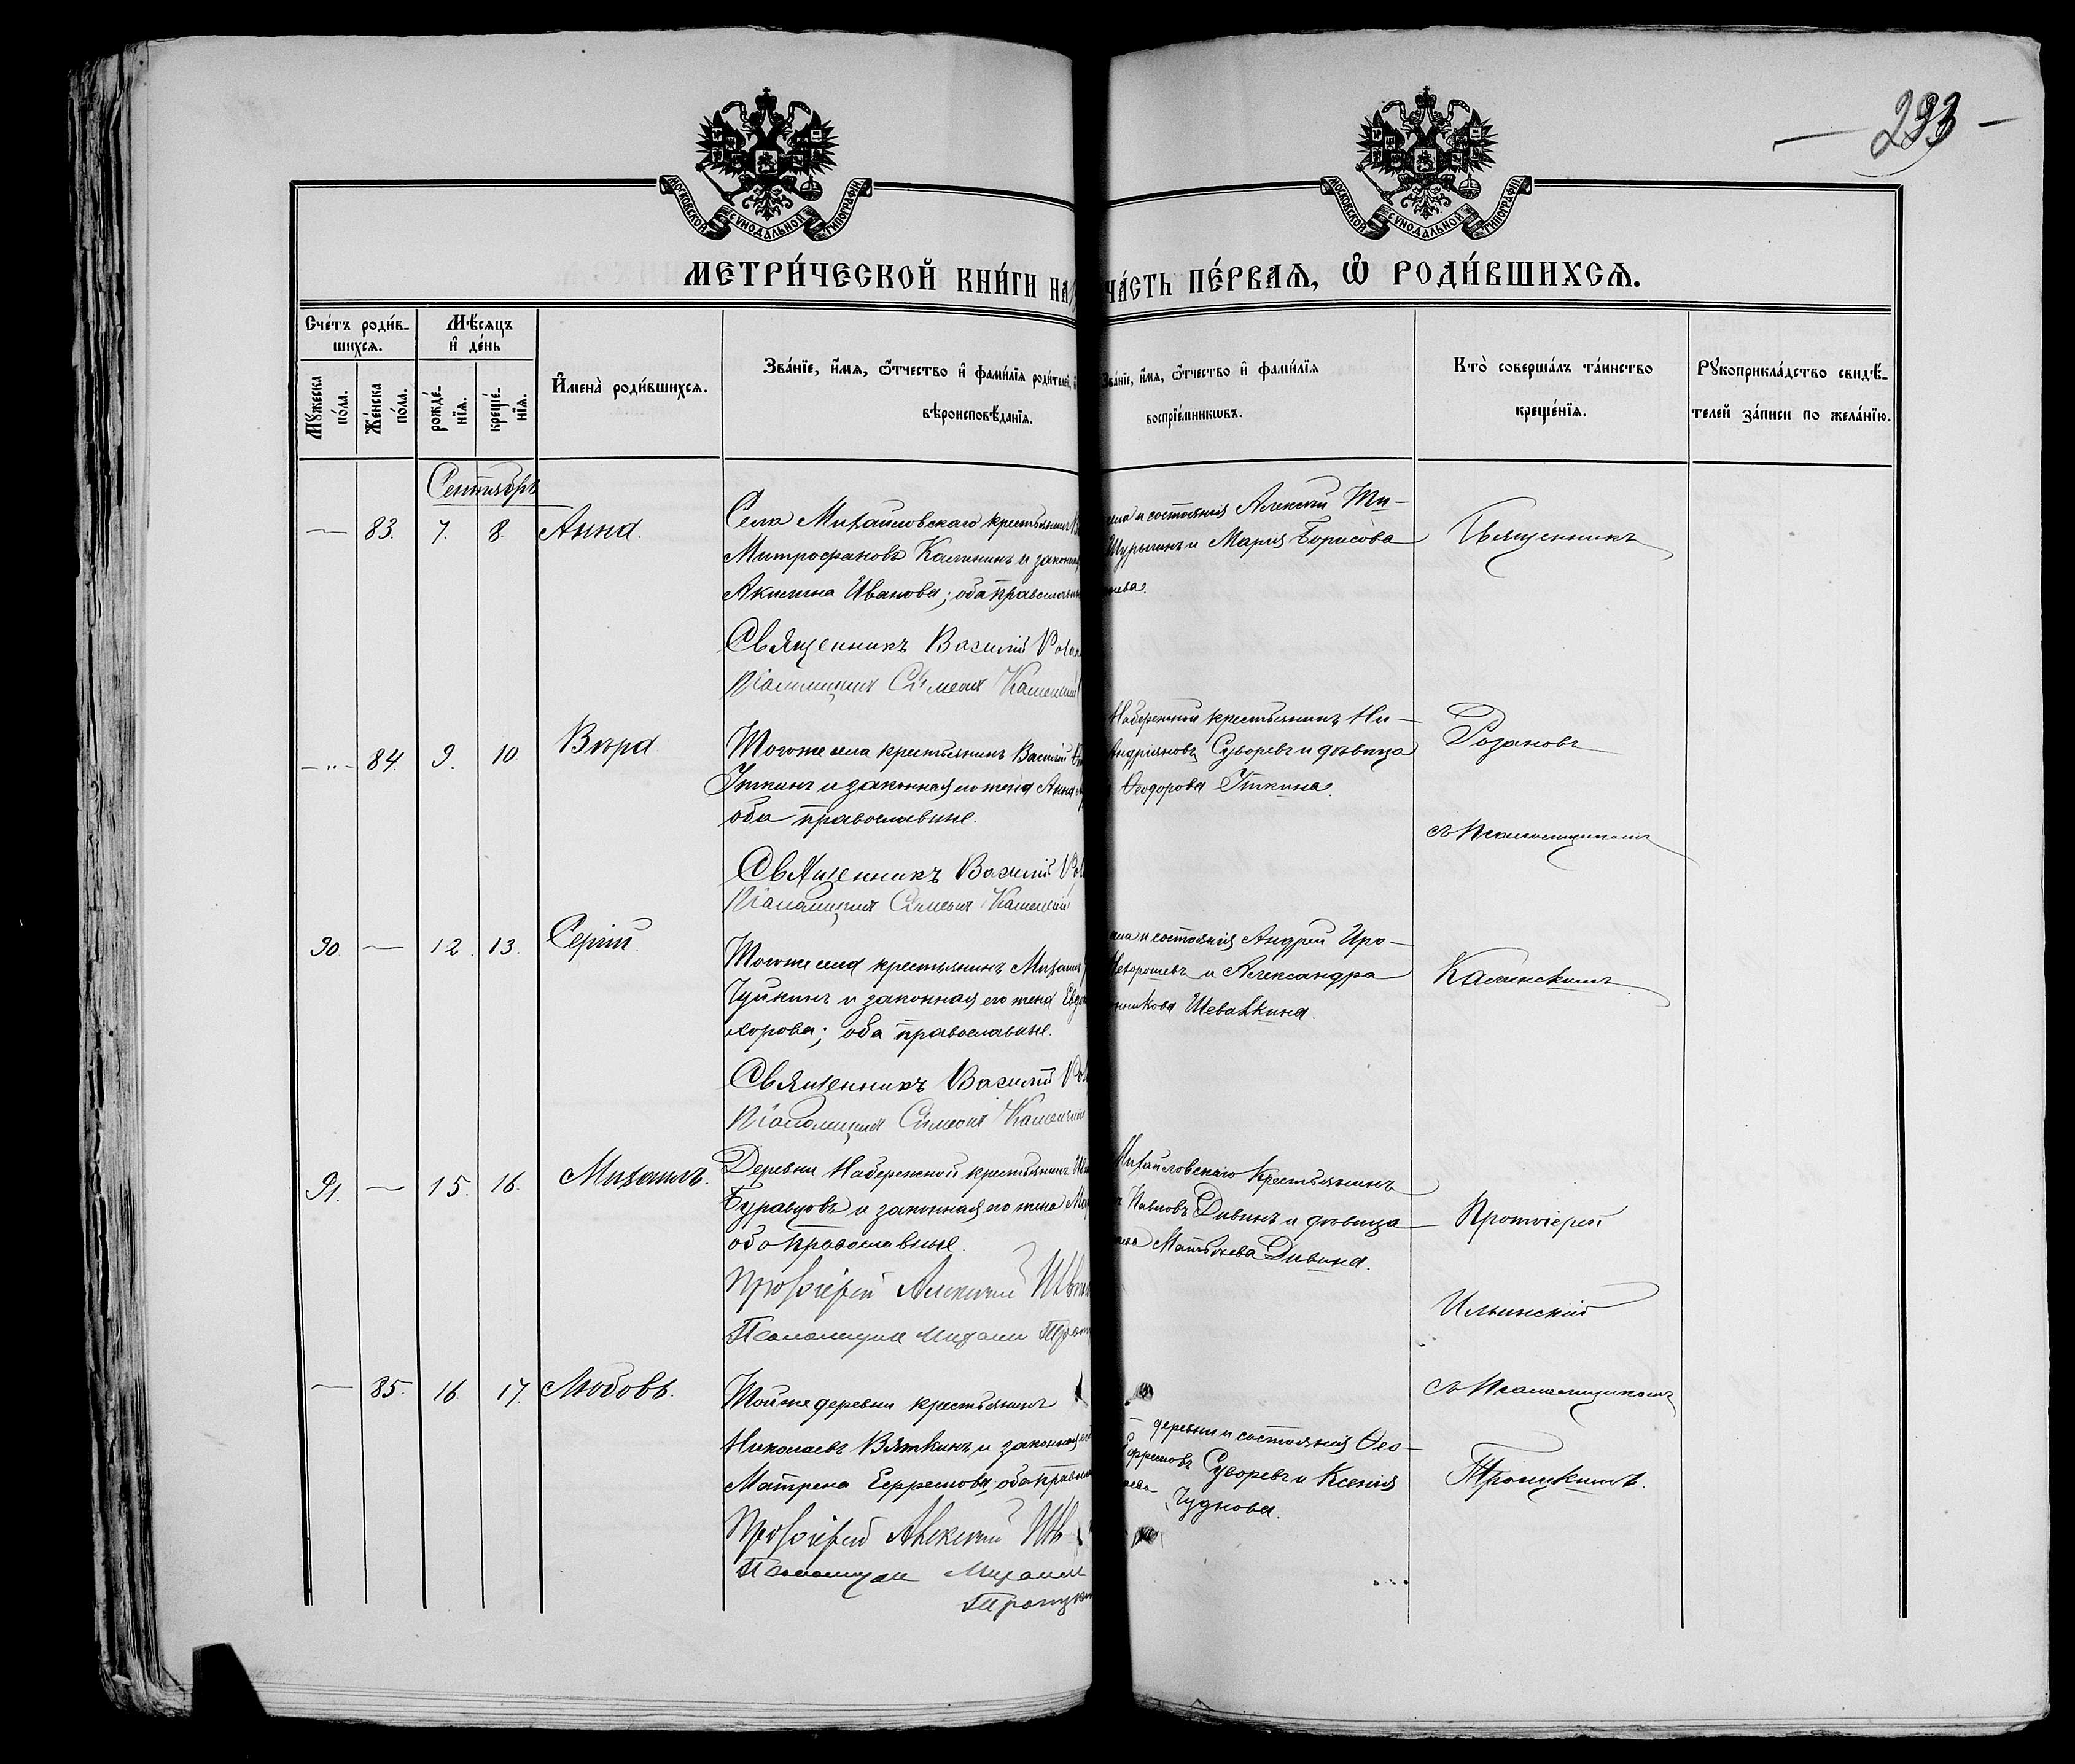 293
МОСКОВСКОЙ СѴНОДАЛЬНОЙ ТИПОГРАФІИ
МОСКОВСКОЙ СѴНОДАЛЬНОЙ ТИПОГРАФІИ
МЕТРИ́ЧЕСКОЙ КНИ́ГИ НА
ЧА́СТЬ ПЕ́РВАѦ, Ѡ҆ РОДИ́ВШИХСѦ.
Сче́тъ роди́в-
шихсѧ.
Мѣ́сѧцъ
и҆ де́нь
Мꙋ́жеска по́ла.
Же́нска по́ла.
рожде́-
нїѧ.
креще́-
нїѧ.
И҆мена̀ роди́вшихсѧ.
Зва́нїе, и҆́мѧ, ѻ҆́тчество и҆ фами́лїѧ роди́телей,
вѣроисповѣ́данїѧ.
Зва́нїе, и҆́мѧ, ѻ҆́тчество и҆ фами́лїѧ
воспрїе́мникѡвъ.
Кто̀ соверша́лъ та́инство
креще́нїѧ.
Рꙋкоприкла́дство свидѣ́-
телей за́писи по жела́нїю.
Сентябрь
— 83. 7. 8. Анна.
Села Михайловскаго крестьянинъ
Митрофановъ Калининъ и законная
Акилина Иванова; оба православные
Священникъ Василій
Псаломщикъ Симеонъ Каменскій
и состоянія Алексѣй Ти-
Шурыгинъ и Марія Борисова
Священникъ
— " — 84. 9. 10. Вѣра.
Тогоже села крестьянинъ Василій
Уткинъ и законная его жена Анна
оба православные.
Священникъ Василій
Псаломщикъ Симеонъ Каменскій
Набережной крестьянинъ Ни-
Андріяновъ Суворевъ и дѣвица
Ѳеодорова Уткина.
Розановъ
съ псаломщикомъ
90. — 12. 13. Сергій.
Тогоже села крестьянинъ Михаилъ
Чуйкинъ и законная его жена
хорова; оба православные.
Священникъ Василій
Псаломщикъ Симеонъ Каменскій
и состоянія Андрей Про-
и Александра
Шевяткина.
Каменскимъ.
91. — 15. 16. Михаилъ.
Деревни Набережной крестьянинъ
Буравцовъ и законная его жена
оба православные.
Протоіерей Алексѣй
Псаломщикъ Михаилъ
Михайловскаго крестьянинъ
Павловъ Дивинъ и дѣвица
Матвѣева Дивина.
Протоіерей
Ильинскій
— 85. 16. 17. Любовь.
Тойже деревни крестьянинъ
Николаевъ Вяткинъ и законная его
Матрена Ефремова; оба
Протоіерей Алексѣй
Псаломщикъ Михаилъ
деревни и состоянія Ѳео-
Ефремовъ Суворевъ и Ксенія
Чуднова.
съ псаломщикомъ
Троицкимъ.